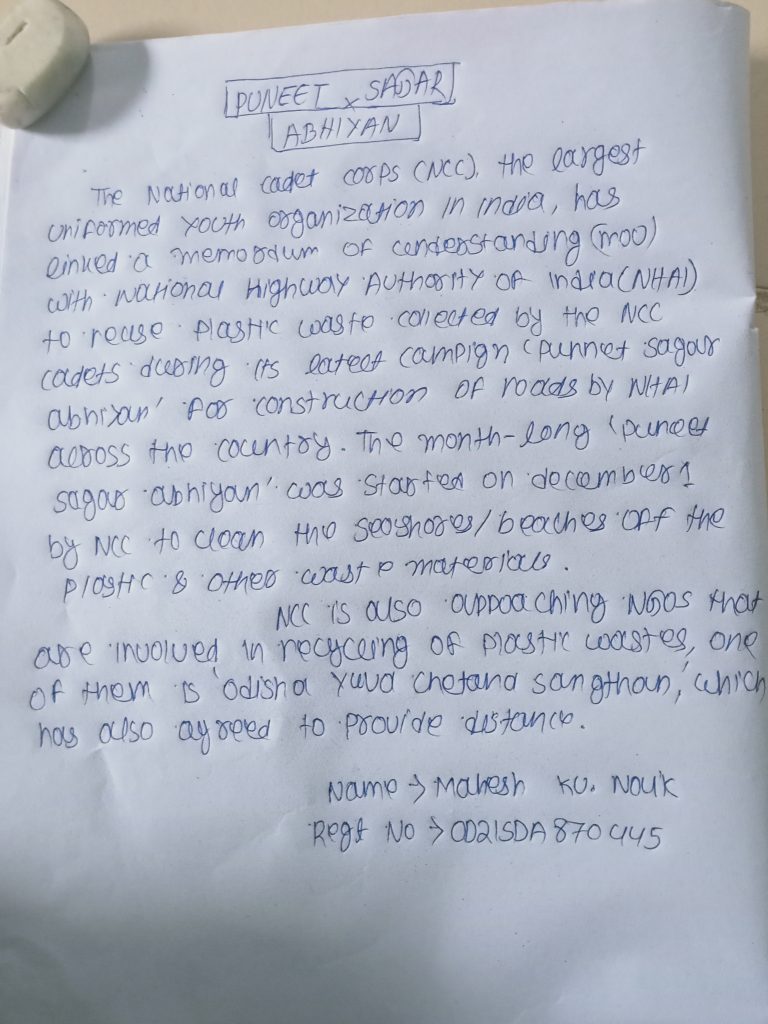 PUNEET SAGAR
ABHIYAN
The National cadet corps (NCC), the largest
uniformed youth organization in india, has
linked a memordum of understanding (moo)
with National Highway Authority of india (NHAI)
to reuse plastic waste collected by the NCC
cadets during its latest campign (punnet sagar
abhiyan' for construction of roads by NHAI
across the country. The month-long 'puneet
sagar abhiyan' was started on december 1
by NCC to clean the seashores/beaches off the
plastic & other waste materials.
NCC is also appoaching NGOs that
are involved in recycling of plastic wastes, one
of them is 'odisha Yuva chetana sangthan,' which
has also agreed to provide distance.
Name → Mahesh KU. Nouk
Regt No → OD21SDA870445